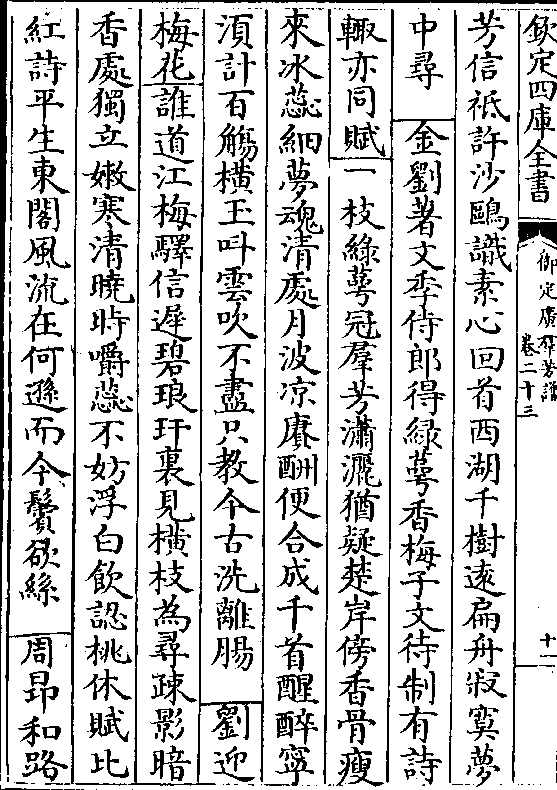 欽定四庫全書
御定廣羣芳譜
卷二十三
十一
芳信祇許沙鷗識素心回首西湖千樹遠扁舟寂寞夢
中尋　金劉著文季侍郎得綠萼香梅子文待制有詩
輙亦同賦　一枝綠萼冠羣芳瀟灑猶疑楚岸傍香骨瘦
來冰蕊細夢魂清處月波凉賡酬便合成千首醒醉寧
湏計百觴横玉叫雲吹不盡只教今古洗離腸　劉迎
梅花　誰道江梅驛信遲碧琅玕裏見横枝為尋疎影暗
香處獨立嫩寒清曉時嚼蕊不妨浮白飲認桃休賦比
紅詩平生東閣風流在何遜而今鬢欲絲　周昂和路